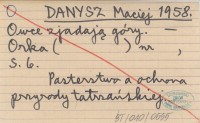 O DANYSZ Maciej 1958.
Owce zjadają góry. —
Orka ( ) nr ,
s. 6.
Pasterstwo a ochrona
przyrody tatrzańskiej.